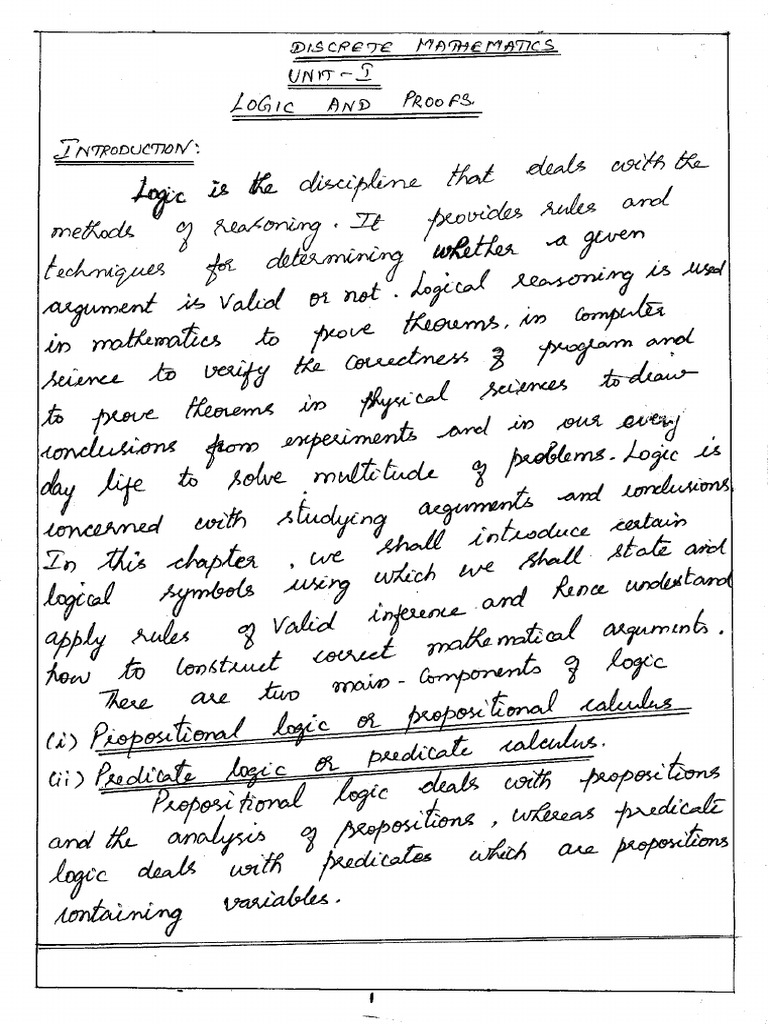 DISCRETE MATHEMATICS
UNIT-I
LOGIC AND PROOFS.
INTRODUCTION:
Logic is the discipline that deals with the
methods of reasoning. It provides rules and
techniques for determining whether a given
argument is valid or not. Logical reasoning is used
in mathematics to prove theorems, in computer
science to verify the correctness of program and
to prove theorems in physical sciences to draw
conclusions from experiments and in our every
day life to solve multitude of problems. Logic is
concerned with studying arguments and conclusions.
In this chapter, we shall introduce certain
logical symbols using which we shall state and
apply rules of valid inference and hence understand
how to construct correct mathematical arguments.
There are two main-components of logic
(i) Propositional logic or propositional calculus
(ii) Predicate logic or predicate calculus.
Propositional logic deals with propositions
and the analysis of propositions, whereas predicate
logic deals with predicates which are propositions
containing variables.
1